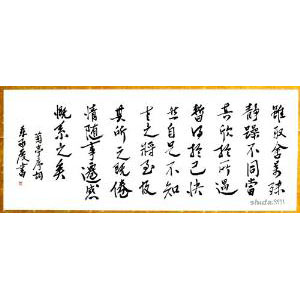 雖取舍萬殊
靜躁不同當
其欣於所遇
暫得於己快
然自足不知
老之將至及
其所之既倦
情隨事遷感
慨系之矣
蘭亭序
慶書